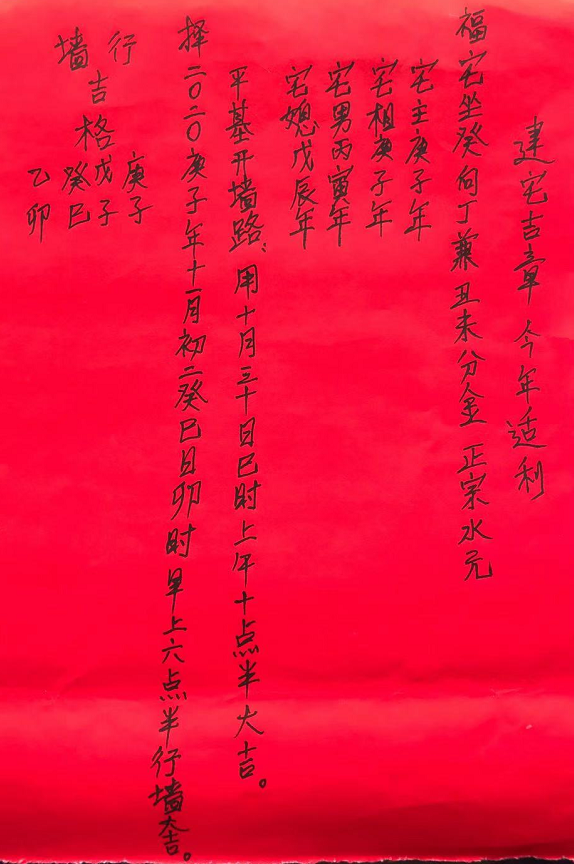 建宅吉章 今年适利
福宅坐癸向丁兼丑未分金 正宗水元
宅主庚子年
宅祖庚子年
宅男丙寅年
宅媳戊辰年
平基开墙路：用十月三十日巳时上午十点半大吉。
择二〇二〇庚子年十一月初二癸巳日卯时早上六点半行墙大吉。
行墙吉格
庚子
戊子
癸巳
乙卯